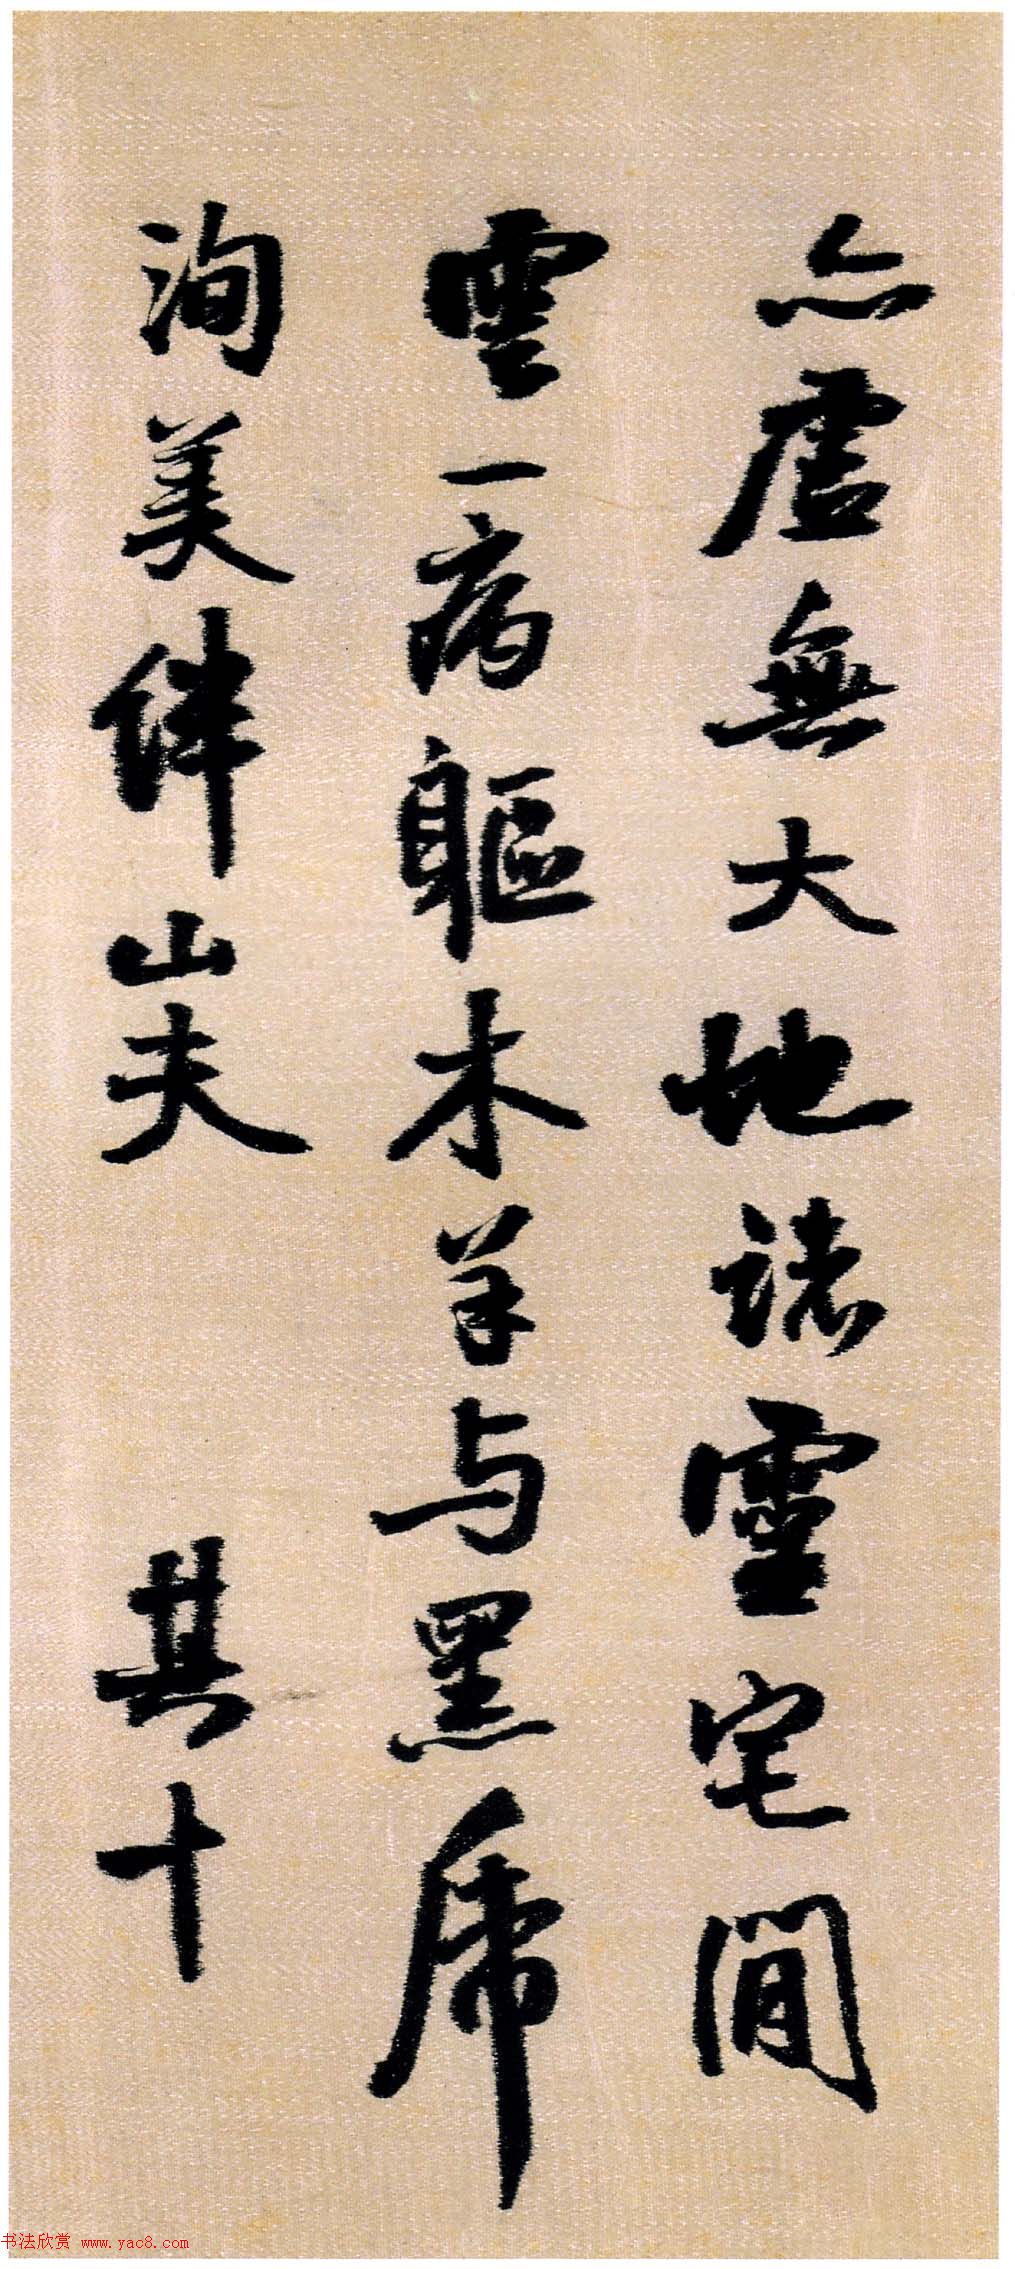 亦虛無大地諸靈宅閒
雲一病軀木羊与黑虎
洵美伴山夫　其十
书法欣赏 www.yac8.com